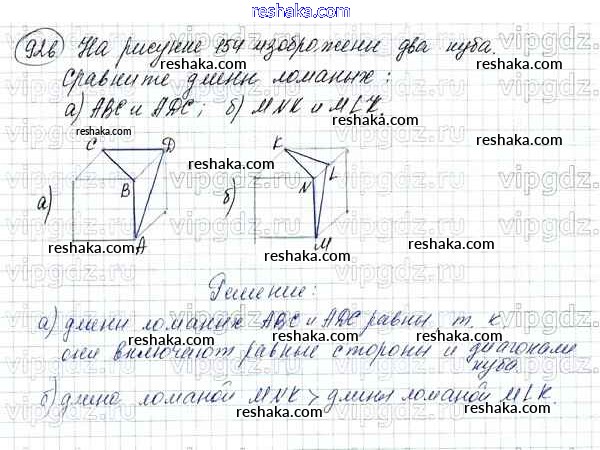 reshaka.com
926 На рисунке 154 изображены два куба.
Сравните длины ломаных:
а) ABC и ADC; б) MNK и MLK.
reshaka.com
reshaka.com
C D K
reshaka.com
B N L
а) б)
reshaka.com
A M
reshaka.com
reshaka.com
Решение:
reshaka.com
а) длины ломаных ABC и ADC равны, т. к.
reshaka.com
они включают равные стороны и диагонали
куба.
reshaka.com
reshaka.com
б) длина ломаной MNK > длины ломаной MLK.
reshaka.com
reshaka.com